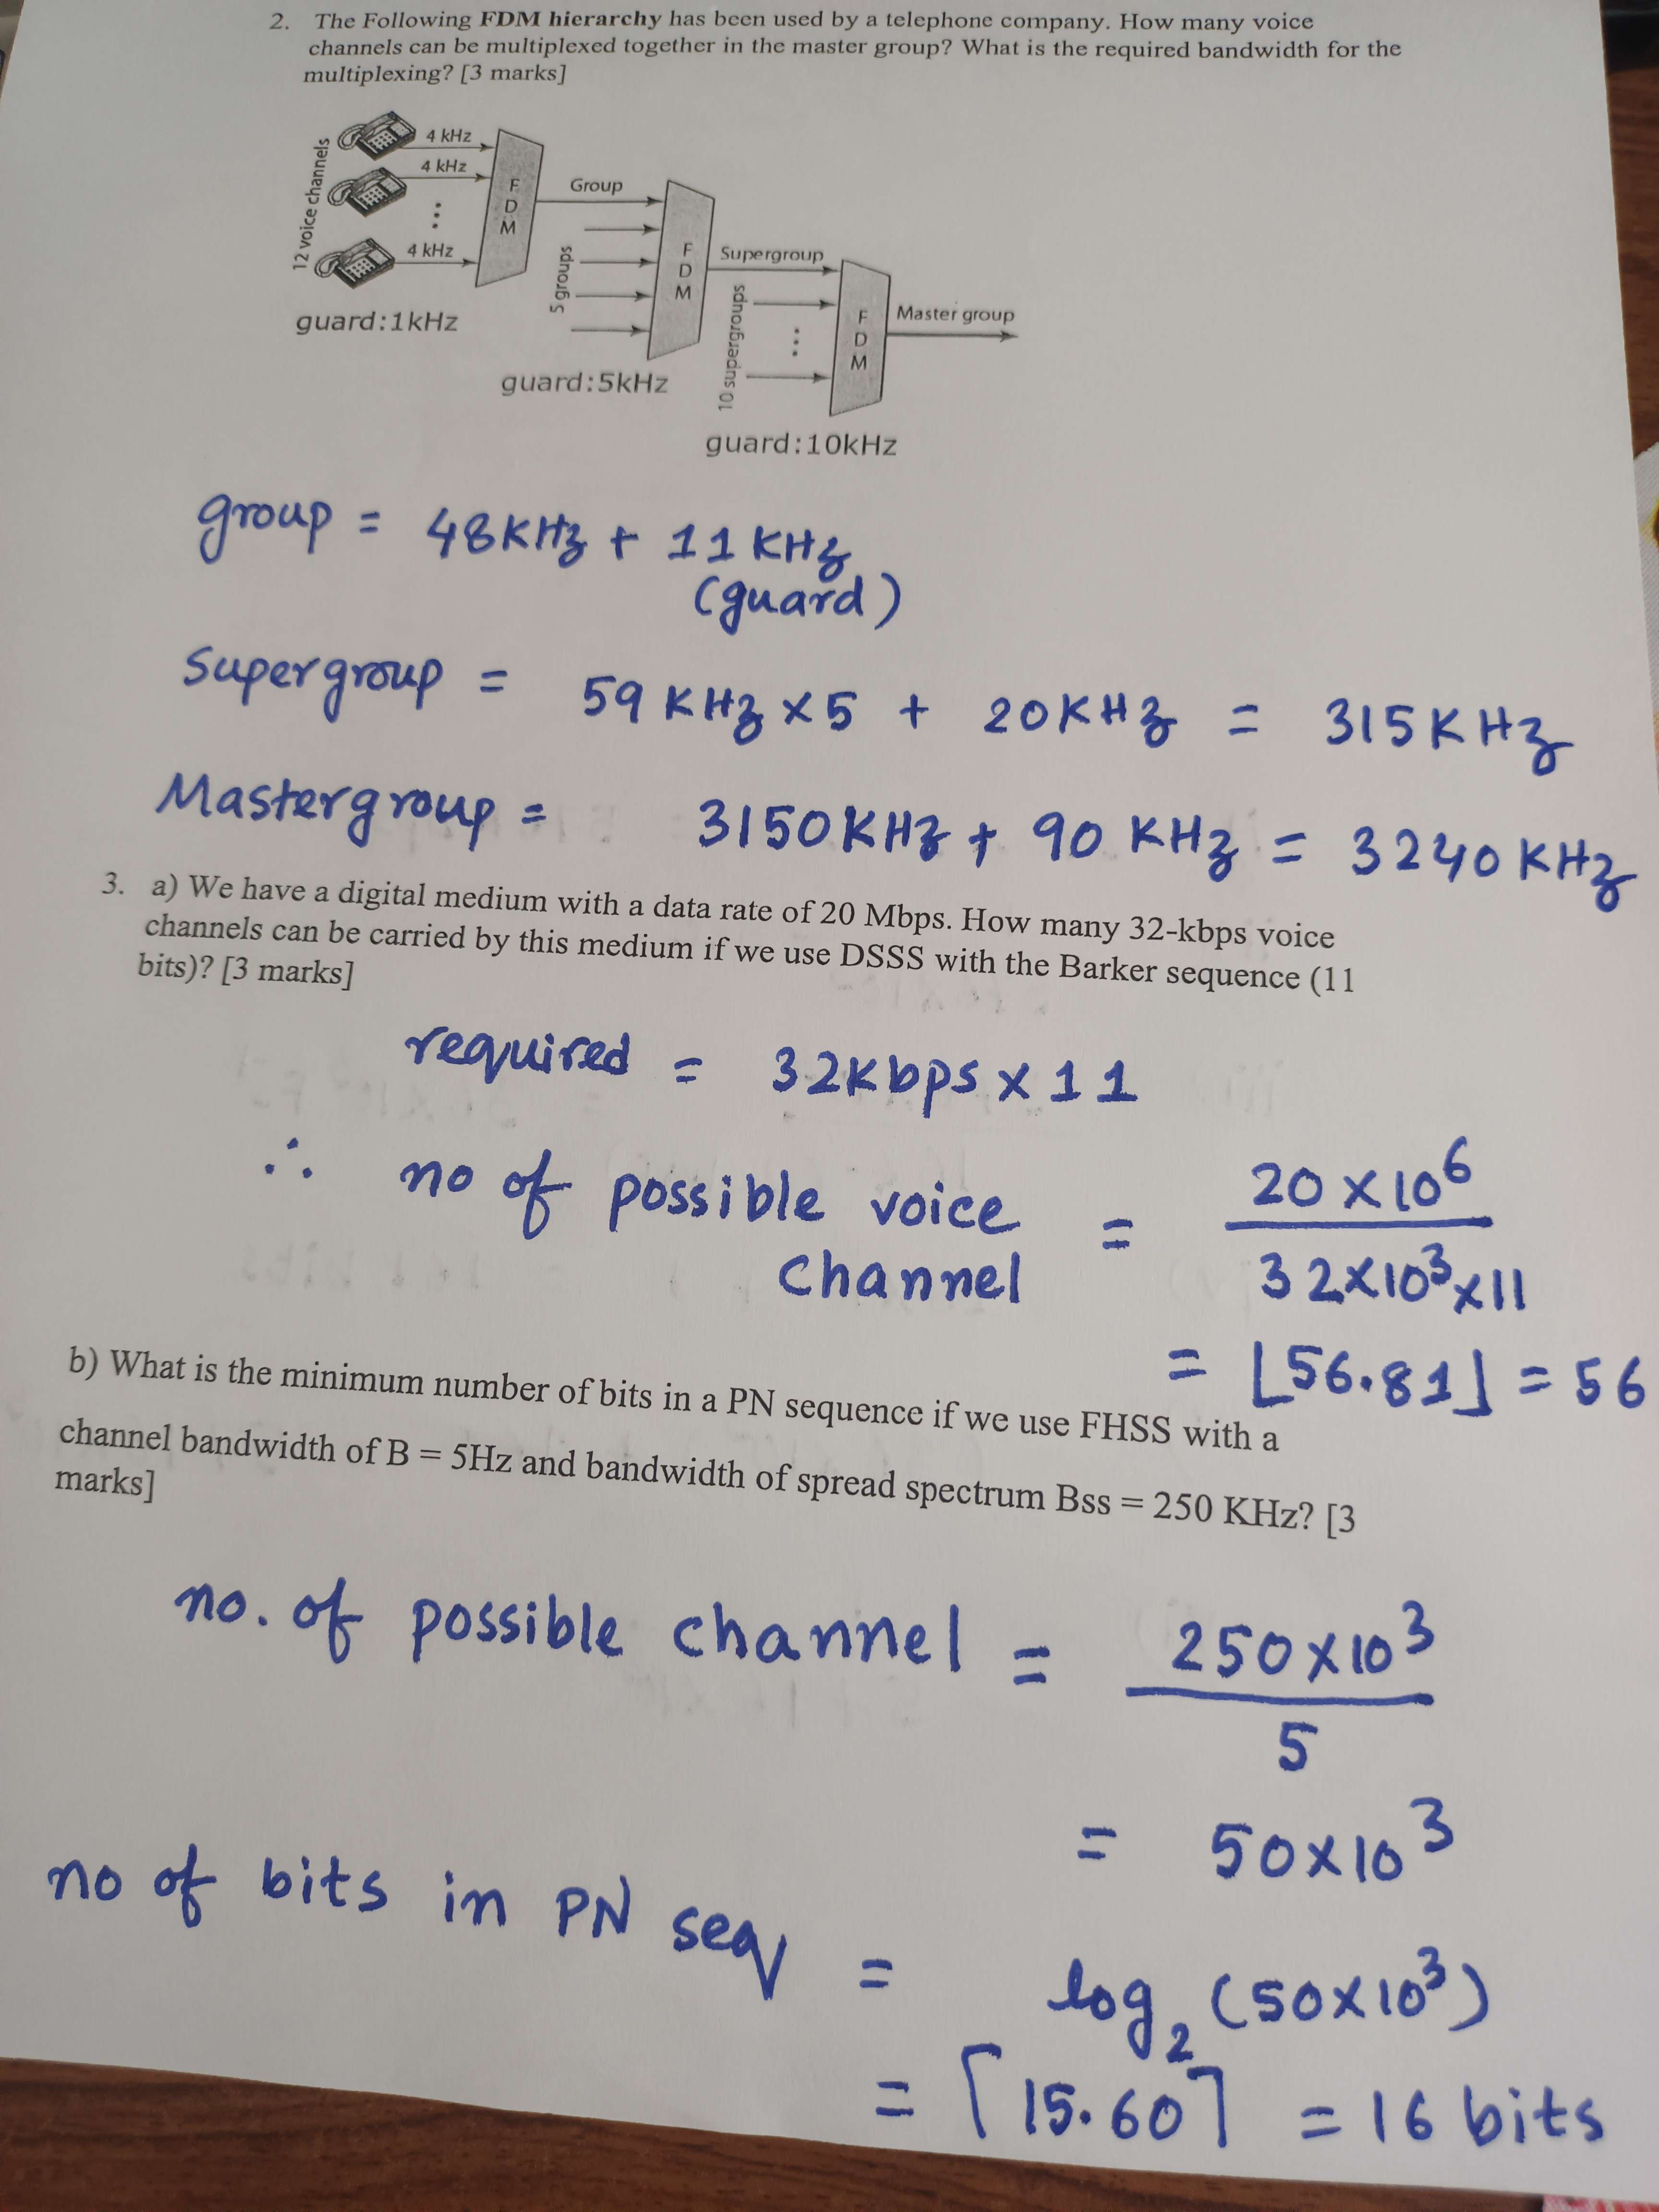 2. The Following FDM hierarchy has been used by a telephone company. How many voice
channels can be multiplexed together in the master group? What is the required bandwidth for the
multiplexing? [3 marks]
12 voice channels
4 kHz
4 kHz
4 kHz
FDM
guard:1kHz
Group
5 groups
FDM
guard:5kHz
Supergroup
10 supergroups
FDM
guard:10kHz
Master group
group = 48KHz + 11 KHz
(guard)
Supergroup = 59 KHz x 5 + 20KHz = 315KHz
Mastergroup = 3150KHz + 90 KHz = 3240KHz
3. a) We have a digital medium with a data rate of 20 Mbps. How many 32-kbps voice
channels can be carried by this medium if we use DSSS with the Barker sequence (11
bits)? [3 marks]
required = 32kbps x 11
∴ no of possible voice channel = 20 x 10⁶ / 32x10³x11
= ⌊56.81⌋ = 56
b) What is the minimum number of bits in a PN sequence if we use FHSS with a
channel bandwidth of B = 5Hz and bandwidth of spread spectrum Bss = 250 KHz? [3
marks]
no. of possible channel = 250x10³ / 5
= 50x10³
no of bits in PN seq = log₂ (50x10³)
= ⌈15.60⌉ = 16 bits